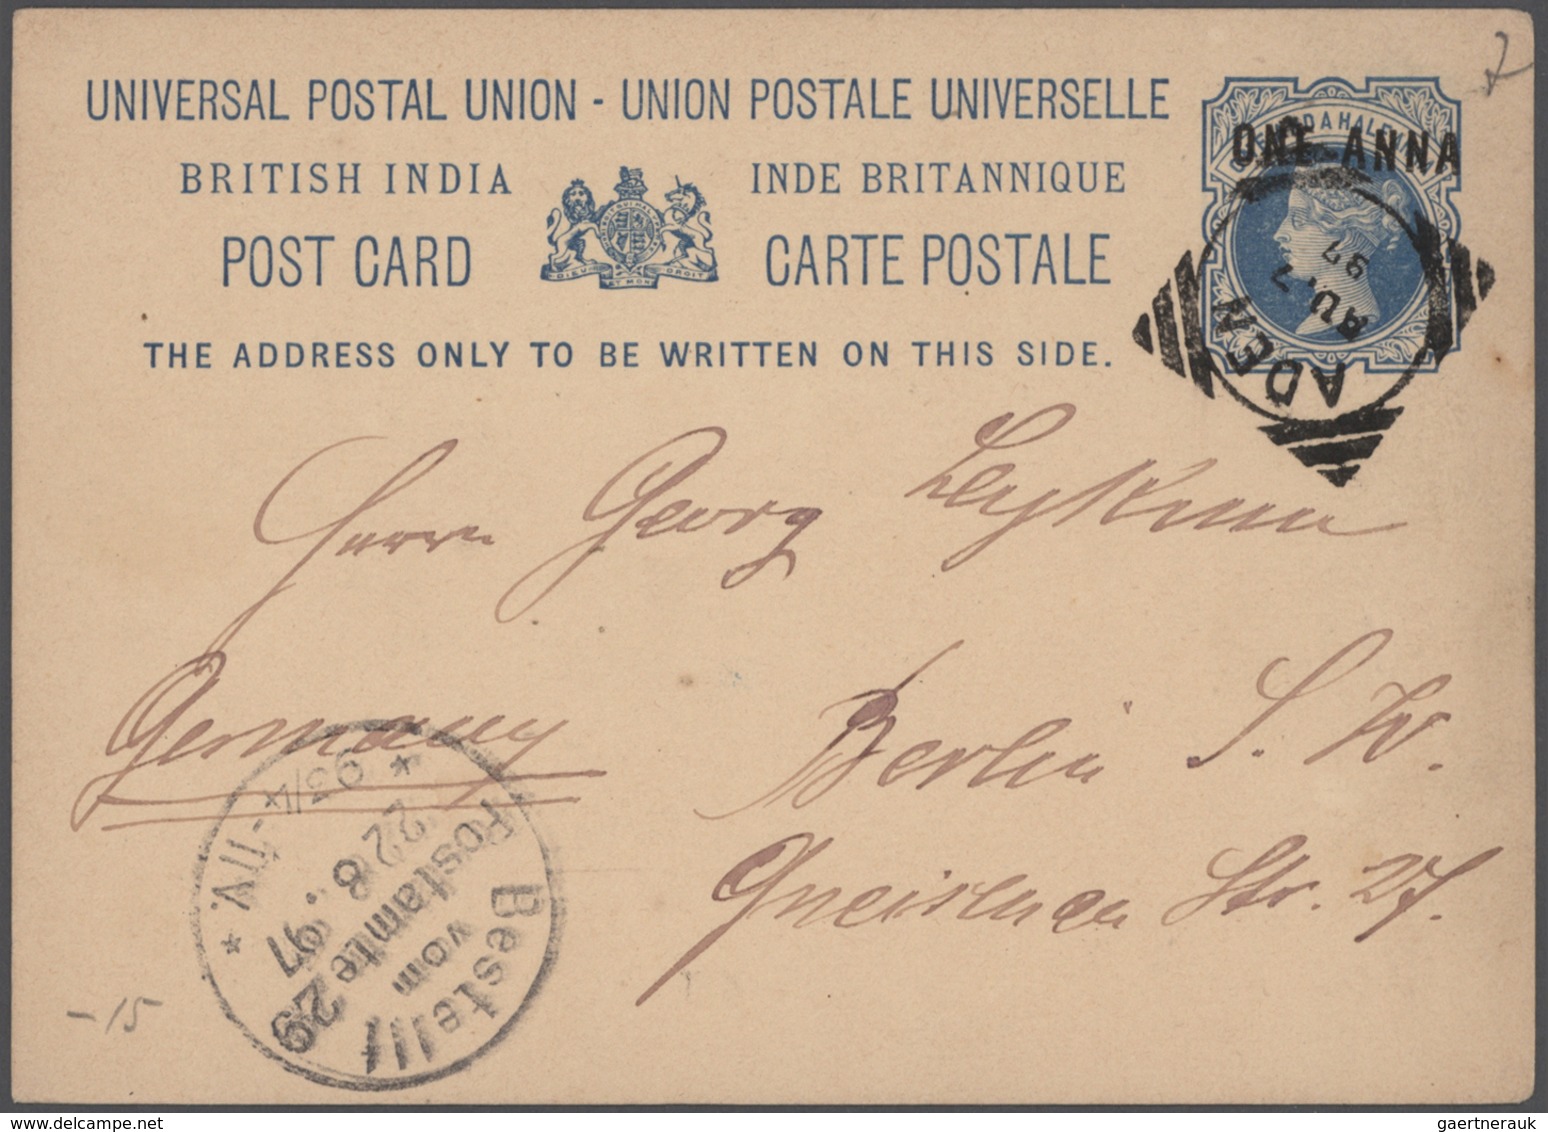 UNIVERSAL POSTAL UNION - UNION POSTALE UNIVERSELLE
BRITISH INDIA INDE BRITANNIQUE
POST CARD CARTE POSTALE
THE ADDRESS ONLY TO BE WRITTEN ON THIS SIDE.
ONE ANNA
DIEU ET MON DROIT
ADEN
AU 7
97
Herrn Georg
Germany
Berlin S. W.
Gneisenau Str. 27.
Bestellt
vom
Postamte 29
22 8. 97
* 93/4 - 11 V. *
- 15
gaertnerauk @ delcampe.net